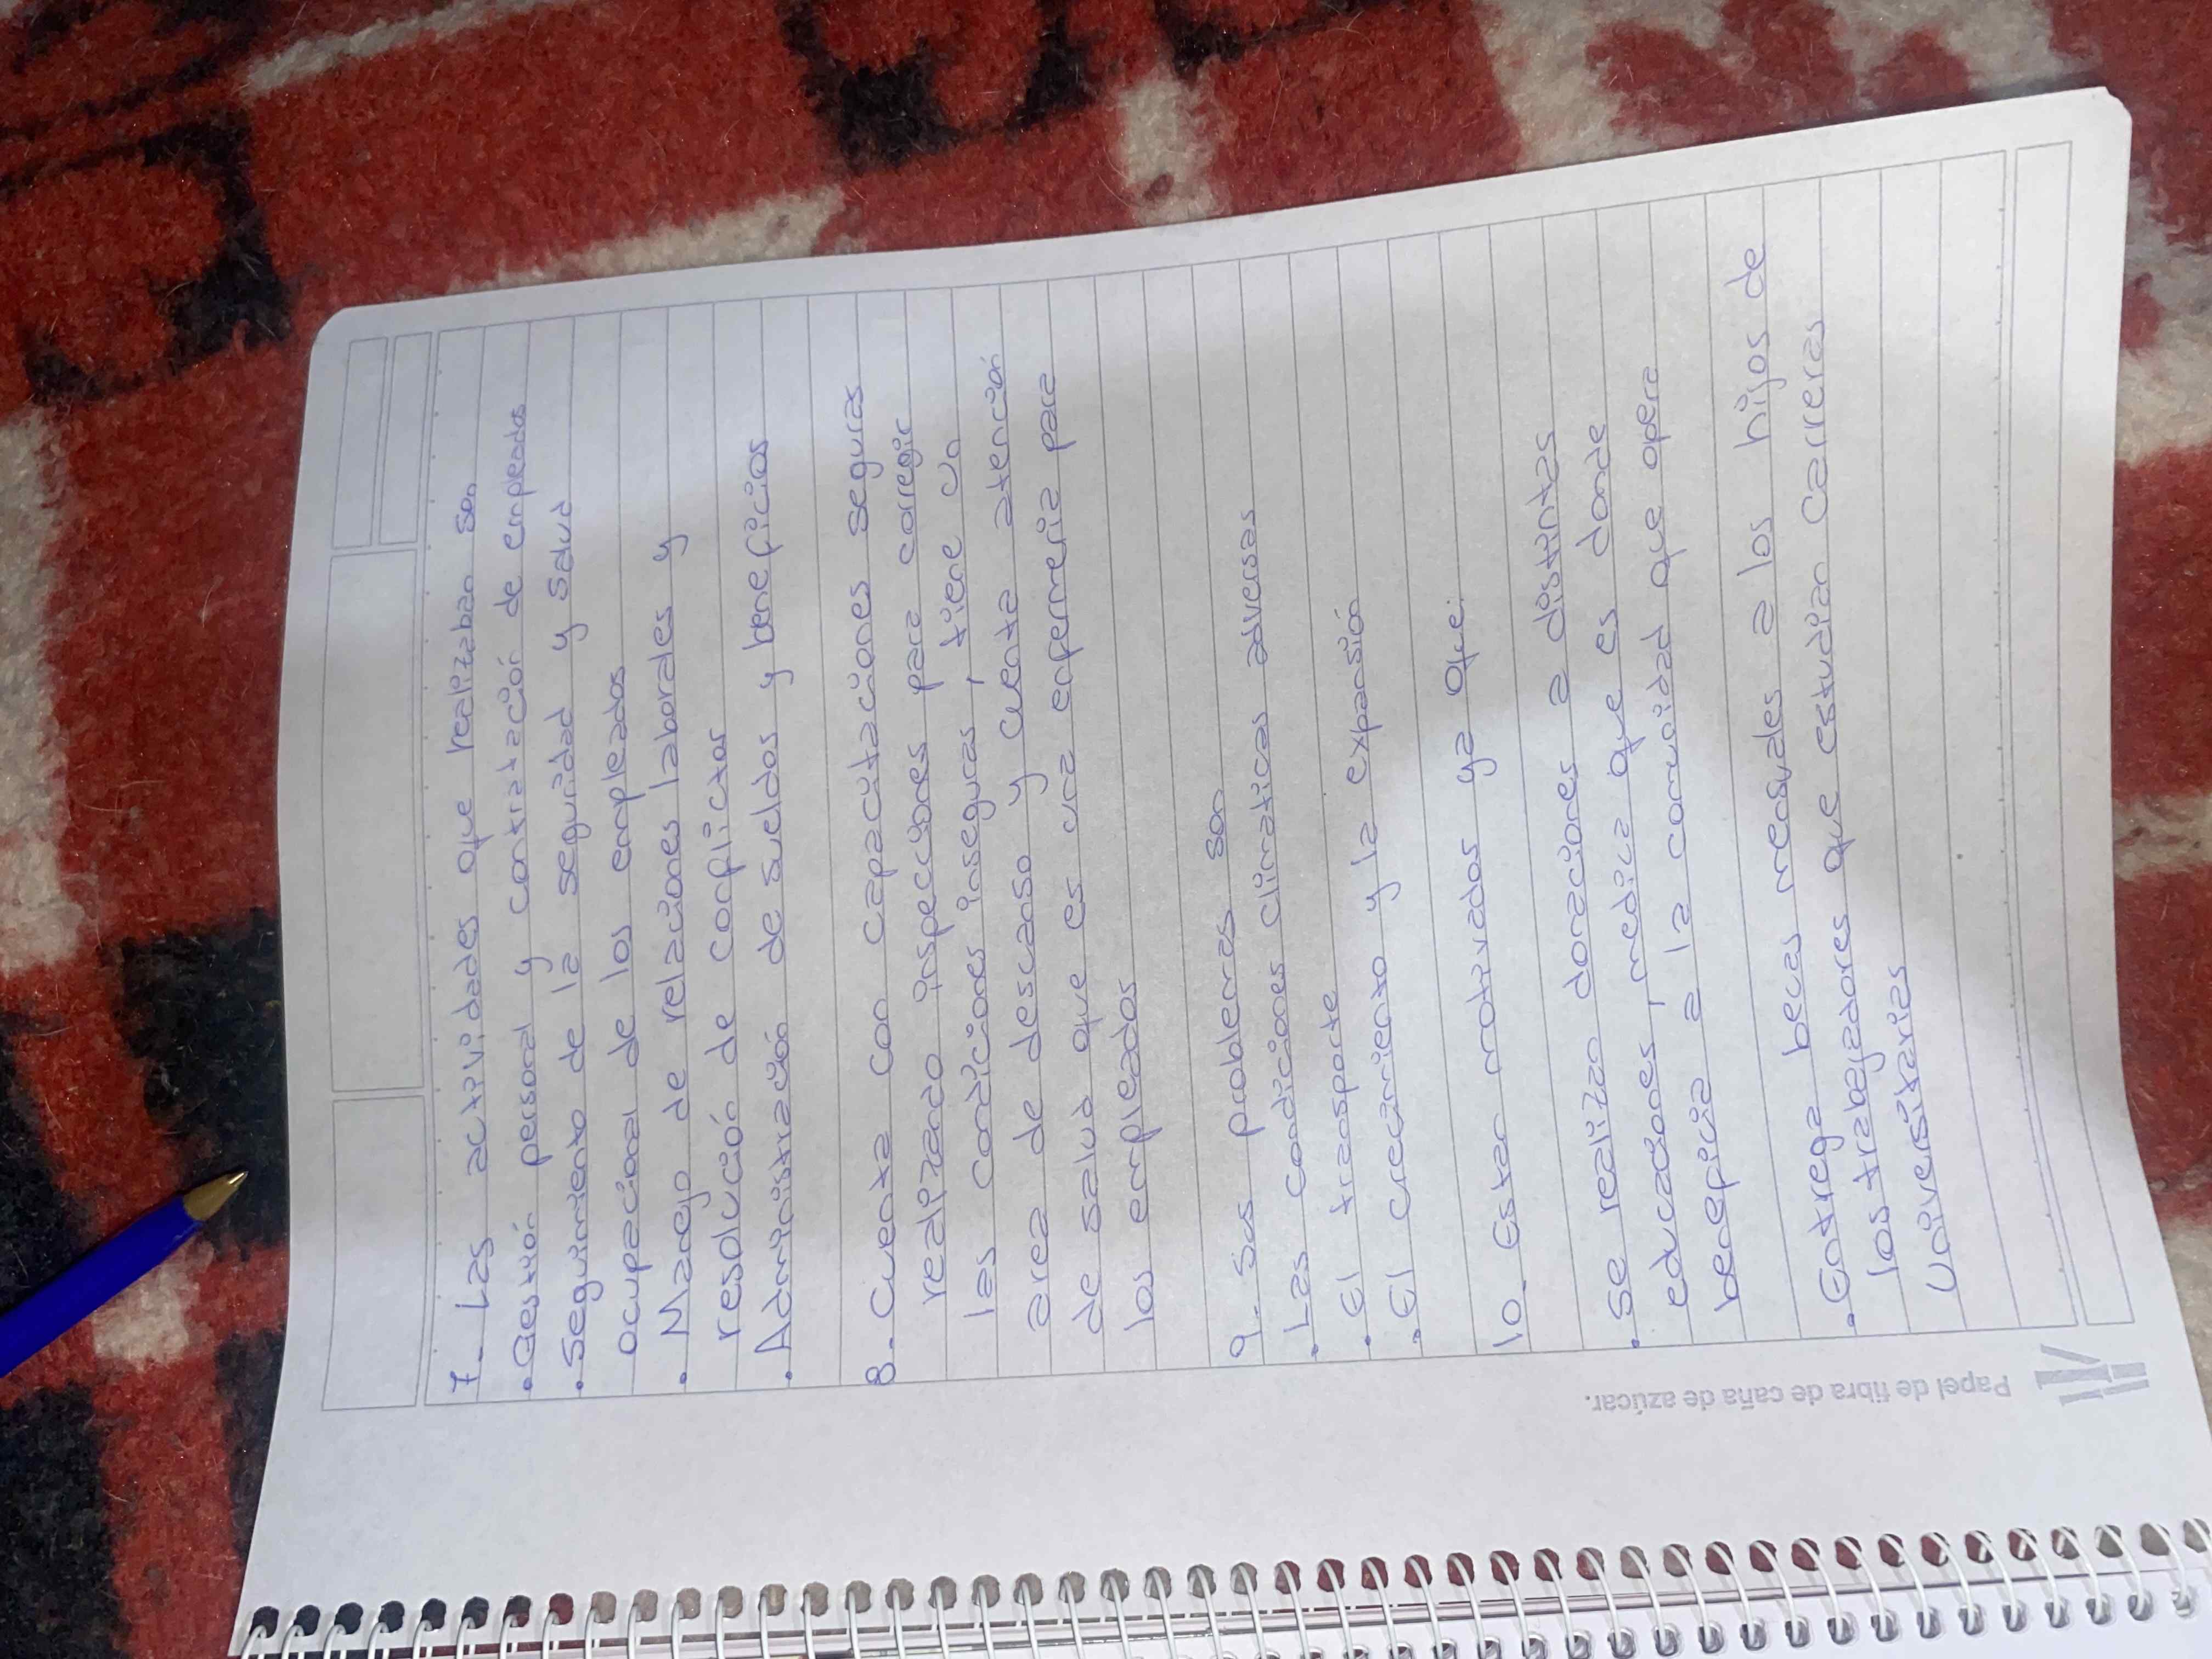 7. Las actividades que realizaban son
• Gestión personal y contratación de empleados
• Seguimiento de la seguridad y salud
ocupacional de los empleados
• Manejo de relaciones laborales y
resolución de conflictos
• Administración de sueldos y beneficios
8. Cuenta con capacitaciones seguras
realizando inspecciones para corregir
las condiciones inseguras, tiene un
area de descanso y cuenta atención
de salud que es una enfermeria para
los empleados
9. Sus problemas son
• Las condiciones climaticas adversas
• El transporte
• El crecimiento y la expansión
10. Estan motivados ya que:
• Se realizan donaciones a distintas
educaciones, medica que es donde
beneficia a la comunidad que opera
• Entrega becas mensuales a los hijos de
los trabajadores que estudian carreras
universitarias
Papel de fibra de caña de azúcar.